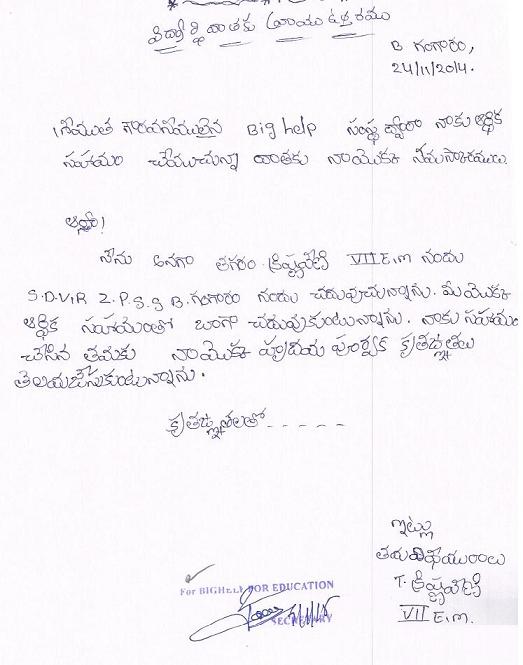 విద్యార్థి దాతకు వ్రాయు ఉత్తరము
B గంగారం,
24/11/2014.
శ్రీయుత గౌరవనీయులైన Big help సంస్థ ద్వారా నాకు ఆర్థిక
సహాయం చేయుచున్నా దాతకు నాయొక్క నమస్కారములు.
ఆర్యా!
నేను అనగా తగరం క్రిష్ణవేణి VII E.m నందు
S.D.V.R Z.P.S.S B.గంగారం నందు చదువుచున్నాను. మీయొక్క
ఆర్థిక సహాయంతో బాగా చదువుకుంటున్నాను. నాకు సహాయం
చేసిన తమకు నాయొక్క హృదయ పూర్వక కృతజ్ఞతలు
తెలియజేసుకుంటున్నాను.
కృతజ్ఞతలతో-----
ఇట్లు
తమ విధేయురాలు
T. క్రిష్ణవేణి
VII E.m.
For BIGHELP FOR EDUCATION
SECRETARY